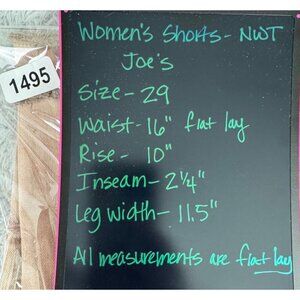 Women's Shorts - NWT
Joe's
1495
Size - 29
Waist - 16" flat lay
Rise - 10"
Inseam - 2 1/4"
Leg width - 11.5"
All measurements are flat lay